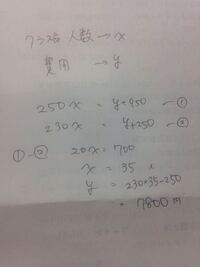 クラス人数→x
費用 →y
250x = y+950 -①
230x = y+250 -②
①-② 20x=700
x = 35
y = 230×35-250
= 7800円